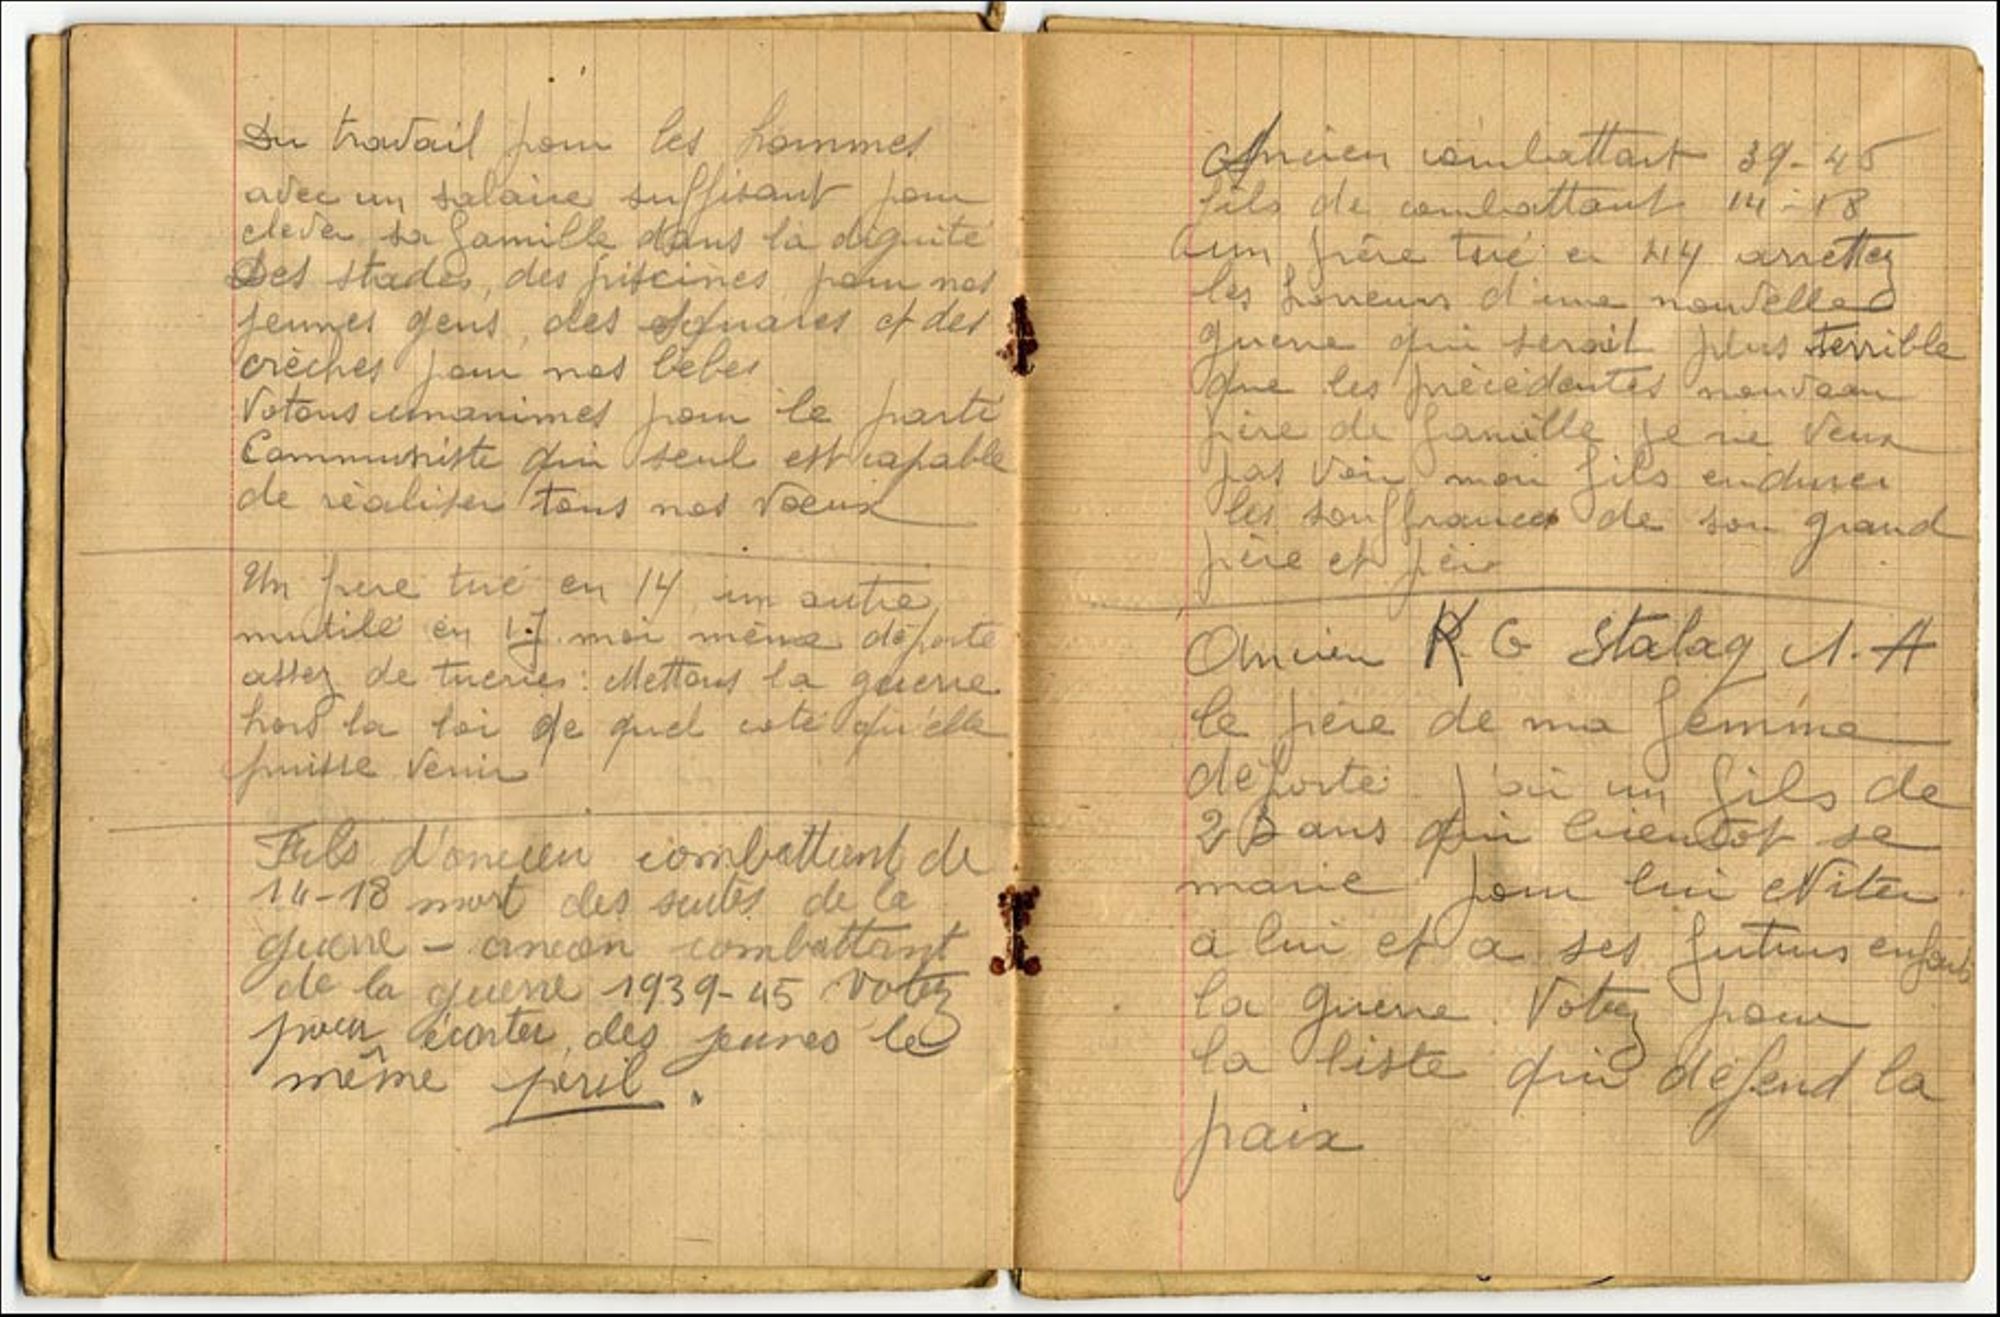 Du travail pour les hommes
avec un salaire suffisant pour
elever sa famille dans la dignité
Des stades, des piscines pour nos
jeunes gens, des squares et des
crèches pour nos bébés
Votons unanimes pour le parti
Communiste qui seul est capable
de réaliser tous nos voeux
Un frere tué en 14 un autre
mutilé en 17 moi même déporté
assez de tueries : Mettons la guerre
hors la loi de quel coté qu'elle
puisse venir
Fils d'ancien combattant de
14-18 mort des suites de la
guerre - ancien combattant
de la guerre 1939-45 Votez
pour écarter des jeunes le
même péril.
Ancien combattant 39-45
fils de combattant 14-18
un frère tué en 44 arrettez
les horreurs d'une nouvelle
guerre qui serait plus terrible
que les précédentes nouveau
père de famille je ne veux
pas voir mon fils endurer
les souffrances de son grand
père et père
Ancien K. G Stalag 1. A
le père de ma femme
déporté j'ai un fils de
23 ans qui bientot se
marie pour lui eviter
a lui et a ses futurs enfants
la guerre. Votez pour
la liste qui défend la
paix